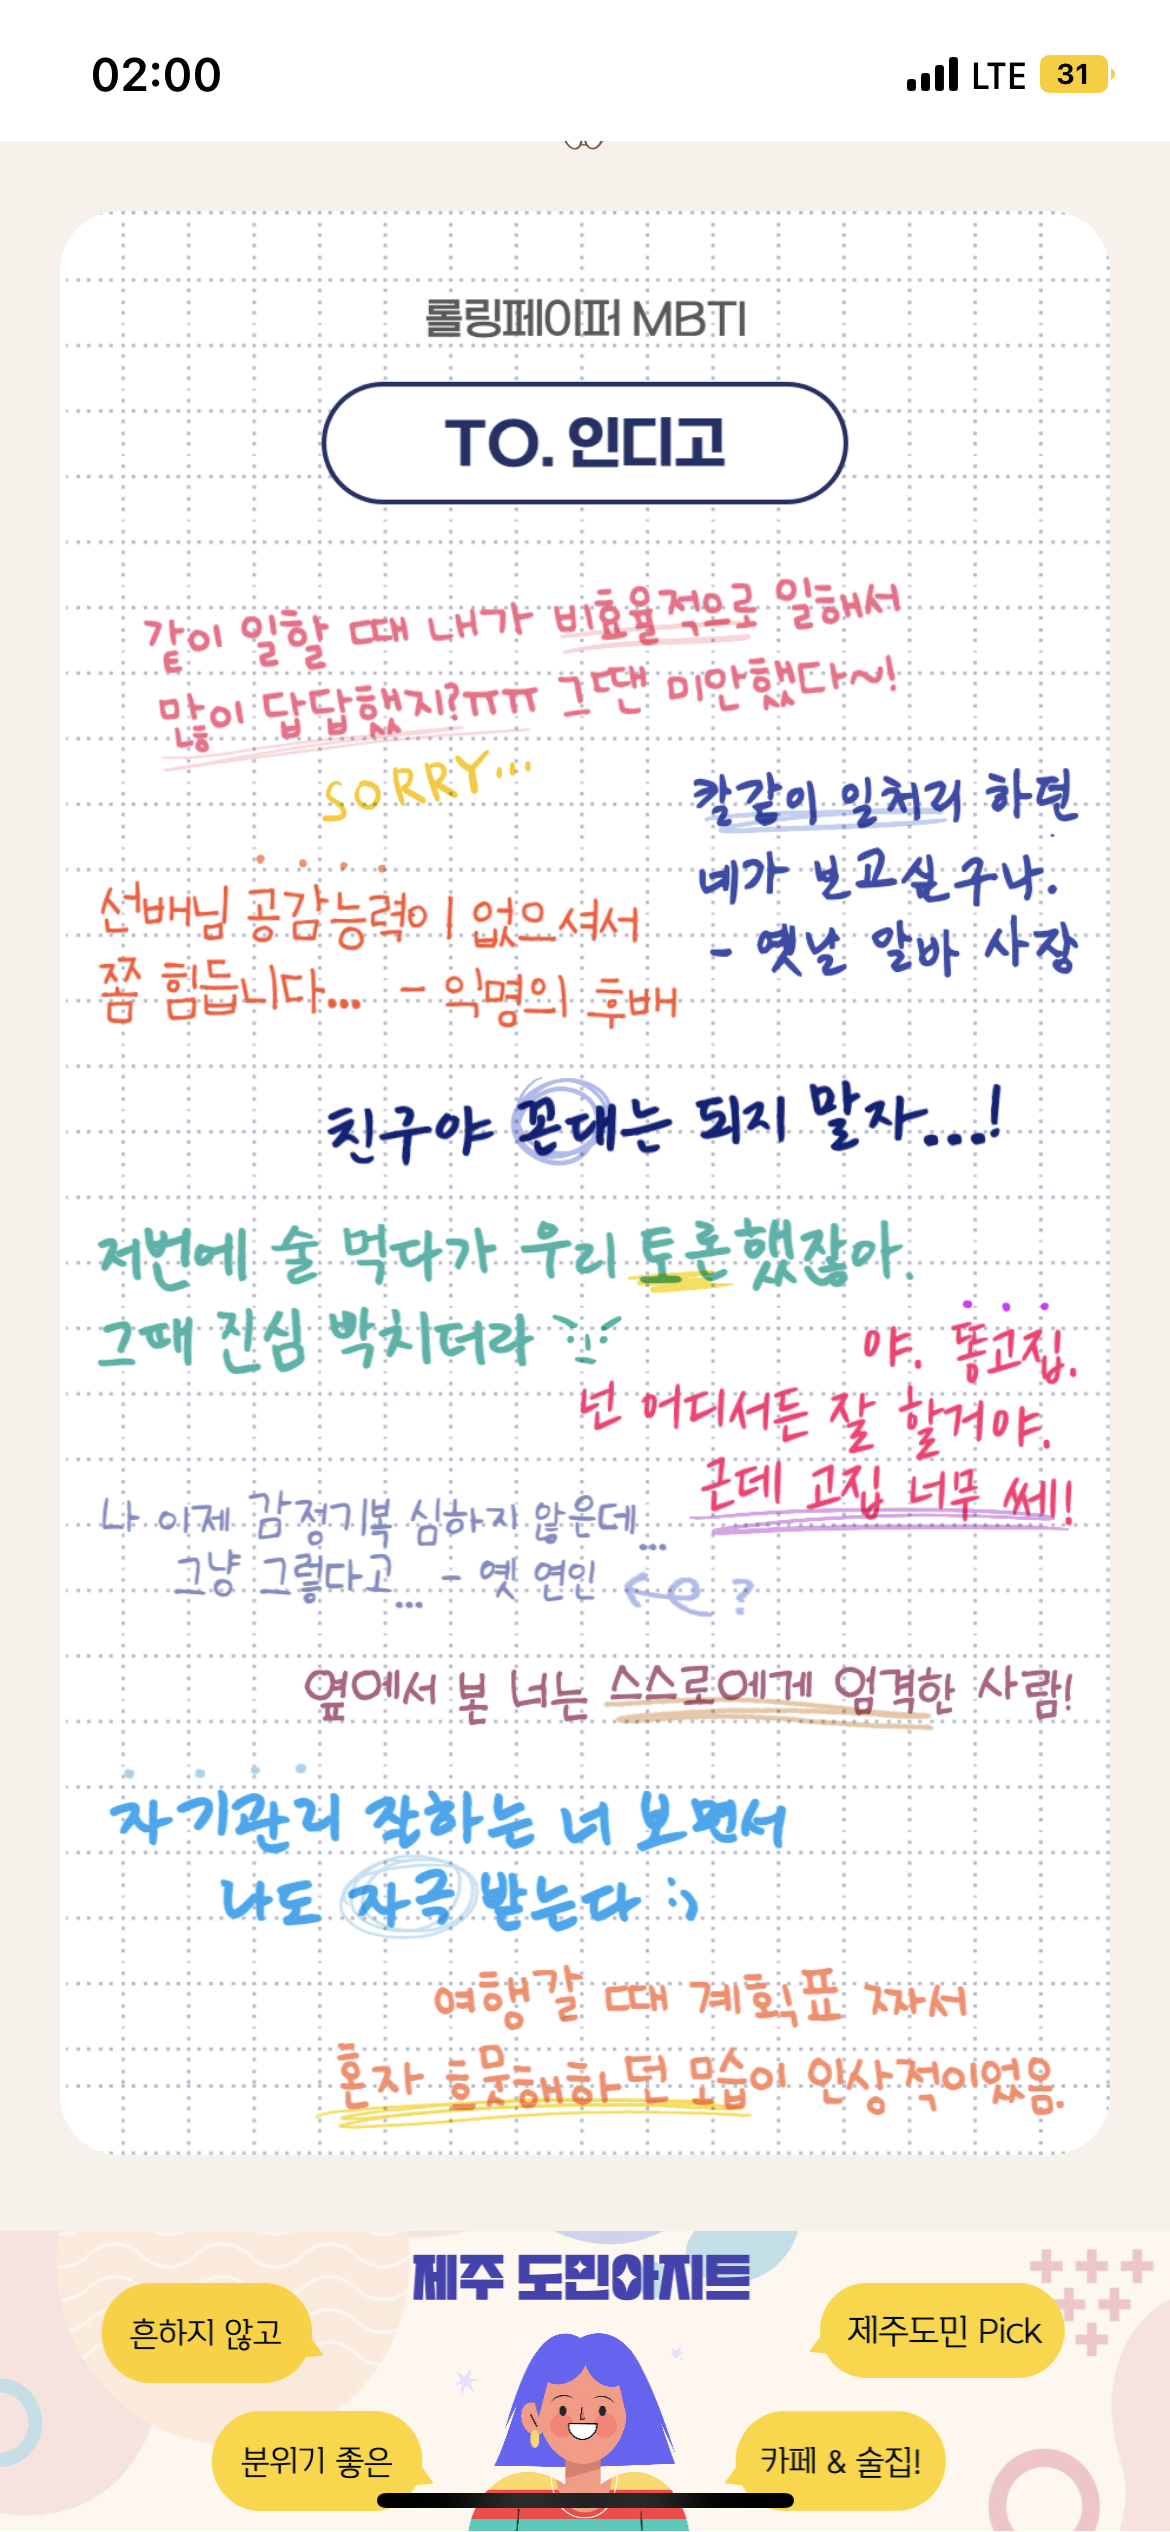 02:00
LTE 31
롤링페이퍼 MBTI
TO. 인디고
같이 일할 때 내가 비효율적으로 일해서
많이 답답했지?ㅠㅠ 그땐 미안했다~!
SORRY...
칼같이 일처리 하던
네가 보고싶구나.
- 옛날 알바 사장
선배님 공감능력이 없으셔서
쫌 힘듭니다... - 익명의 후배
친구야 꼰대는 되지 말자...!
저번에 술 먹다가 우리 토론했잖아.
그때 진심 박치더라
야. 똥고집.
넌 어디서든 잘 할거야.
근데 고집 너무 쎄!
나 이제 감정기복 심하지 않은데...
그냥 그렇다고... - 옛 연인
?
옆에서 본 너는 스스로에게 엄격한 사람!
자기관리 잘하는 너 보면서
나도 자극 받는다 :)
여행갈 때 계획표 짜서
혼자 흐뭇해하던 모습이 인상적이었음.
제주 도민아지트
흔하지 않고
제주도민 Pick
분위기 좋은
카페 & 술집!